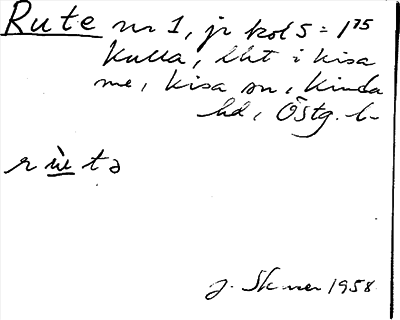 Rute nr 1, jr kol 5 = 1 75
Kulla, lht i Kisa
sn, Kisa sn, Kinda
hd, Östg. l.
r ù t ə
J. 1958